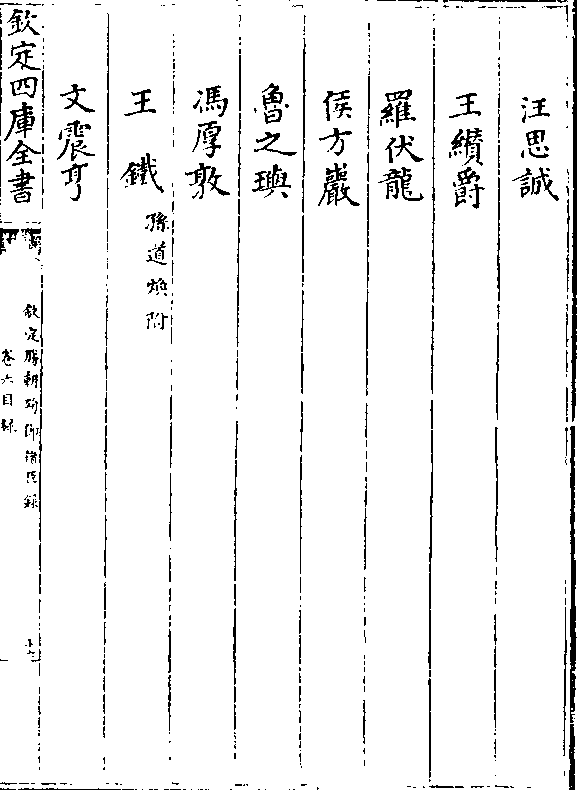 汪思誠
王纘爵
羅伏龍
侯方巖
魯之璵
馮厚敦
王鐵 孫道煥附
文震亨
欽定四庫全書
欽定勝朝殉節諸臣錄
卷六目錄